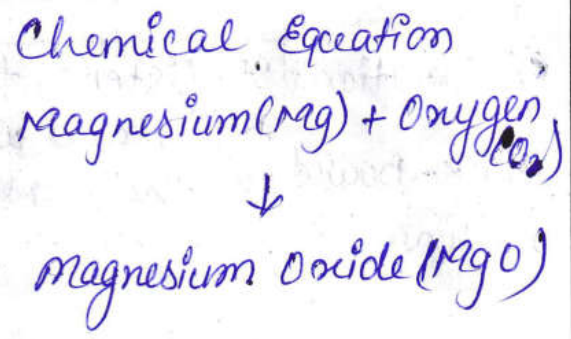 Chemical Equation
Magnesium(Mg) + Oxygen
(O2)
↓
Magnesium Oxide (MgO)